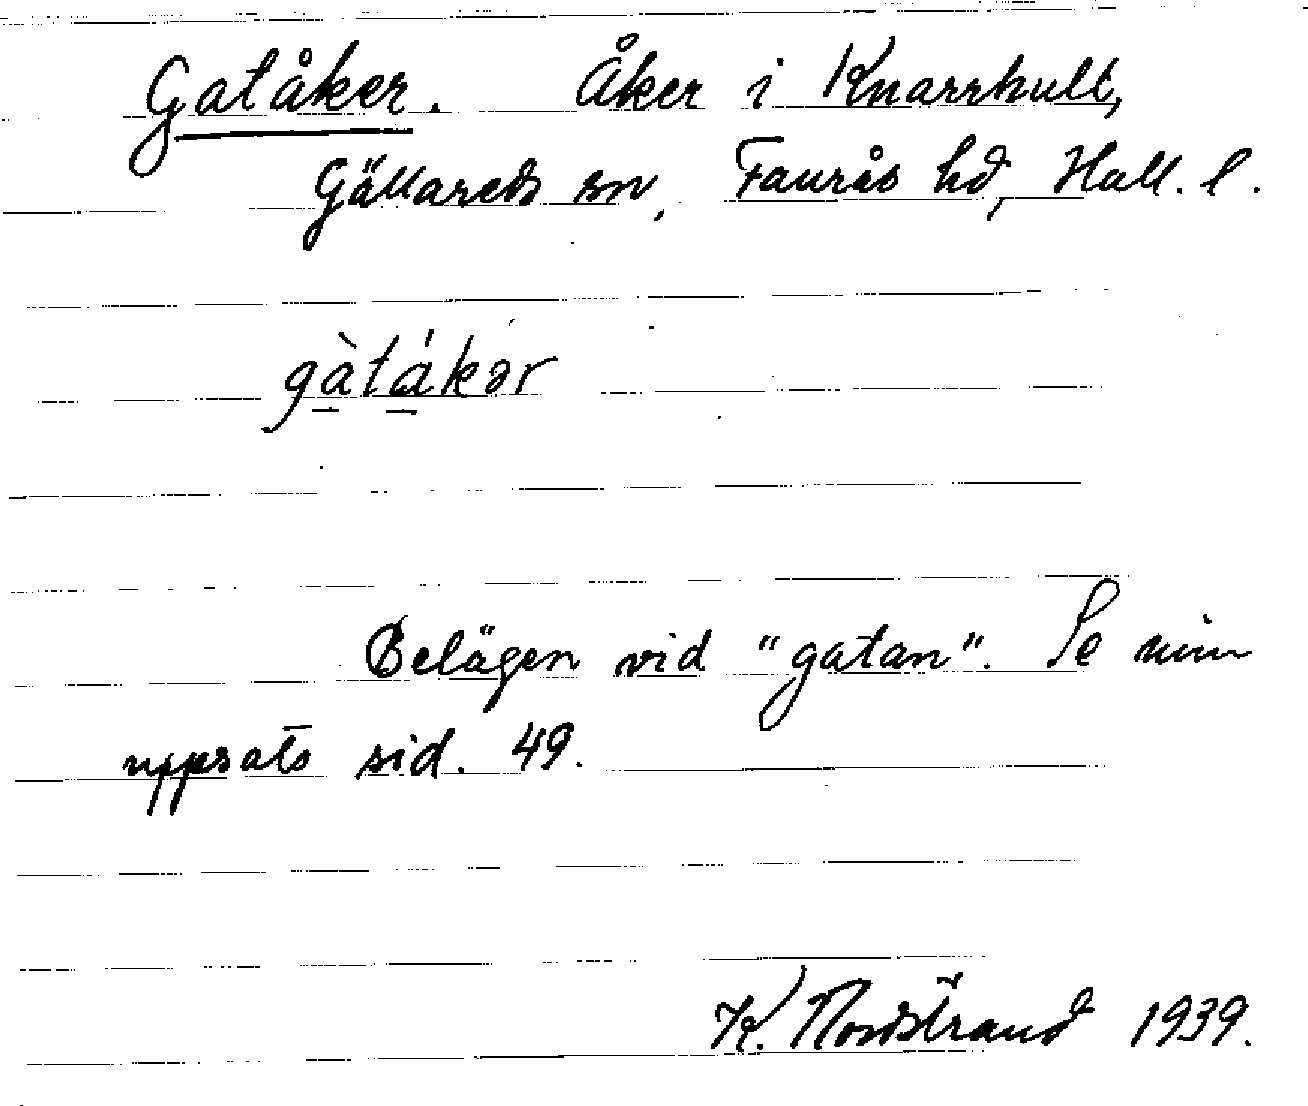 Gatåker. Åker i Knarrhult,
Gällareds sn, Faurås hd, Hall. l.
gàtákər
Belägen vid "gatan". Se min
uppsats sid. 49.
K. Nordstrand 1939.